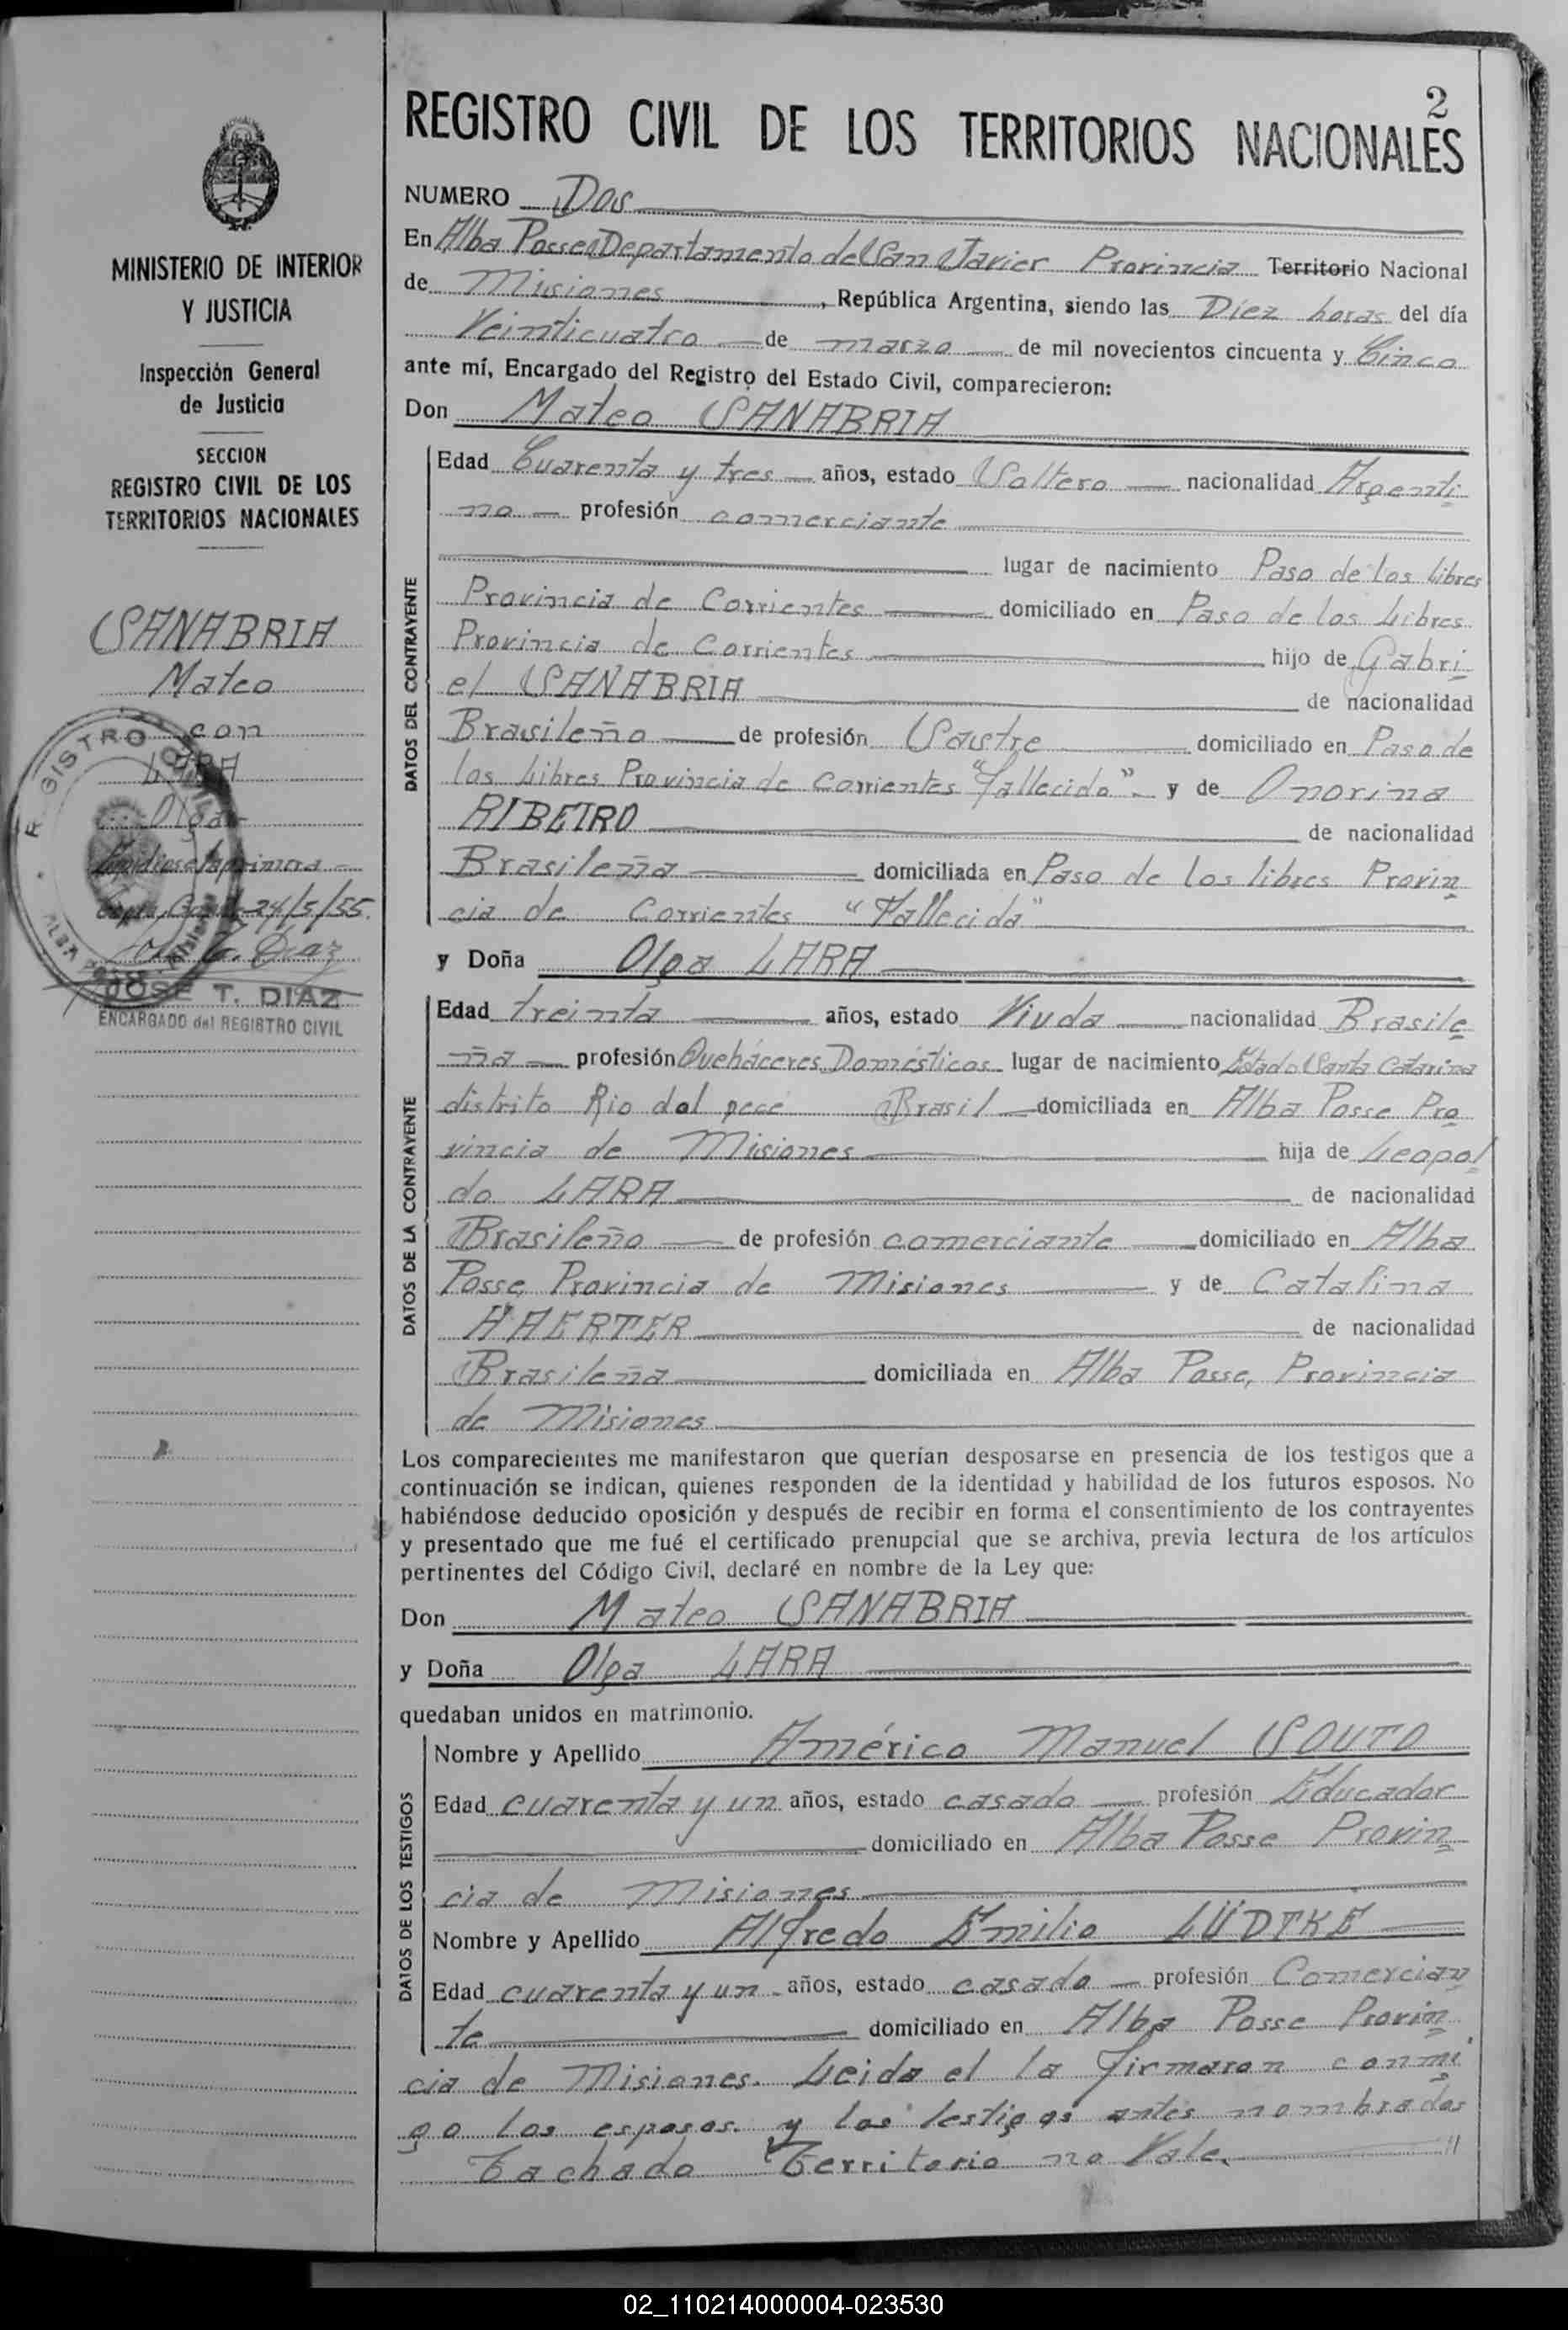 2
REGISTRO CIVIL DE LOS TERRITORIOS NACIONALES
NUMERO Dos
En Alba Posse Departamento de San Javier Provincia Territorio Nacional
de Misiones, República Argentina, siendo las Diez horas del día
Veinticuatro de marzo de mil novecientos cincuenta y Cinco
ante mí, Encargado del Registro del Estado Civil, comparecieron:
Don Mateo SANABRIA
DATOS DEL CONTRAYENTE
Edad Cuarenta y tres años, estado Soltero nacionalidad Argenti
no profesión comerciante
lugar de nacimiento Paso de los libres
Provincia de Corrientes domiciliado en Paso de los Libres
Provincia de Corrientes hijo de Gabri
el SANABRIA de nacionalidad
Brasileño de profesión Sastre domiciliado en Paso de
los Libres Provincia de Corrientes "fallecido" y de Onorina
RIBEIRO de nacionalidad
Brasileña domiciliada en Paso de los libres Provin
cia de Corrientes "Fallecida"
y Doña Olga LARA
DATOS DE LA CONTRAYENTE
Edad treinta años, estado Viuda nacionalidad Brasile
ña profesión Quehaceres Domésticos lugar de nacimiento Estado Santa Catarina
distrito Rio dol pece Brasil domiciliada en Alba Posse Pro
vincia de Misiones hija de Leopol
do LARA de nacionalidad
Brasileño de profesión comerciante domiciliado en Alba
Posse, Provincia de Misiones y de Catalina
HAERTER de nacionalidad
Brasileña domiciliada en Alba Posse, Provincia
de Misiones
Los comparecientes me manifestaron que querían desposarse en presencia de los testigos que a
continuación se indican, quienes responden de la identidad y habilidad de los futuros esposos. No
habiéndose deducido oposición y después de recibir en forma el consentimiento de los contrayentes
y presentado que me fué el certificado prenupcial que se archiva, previa lectura de los artículos
pertinentes del Código Civil, declaré en nombre de la Ley que:
Don Mateo SANABRIA
y Doña Olga LARA
quedaban unidos en matrimonio.
DATOS DE LOS TESTIGOS
Nombre y Apellido Américo Manuel SOUTO
Edad cuarenta y un años, estado casado profesión Educador
domiciliado en Alba Posse Provin
cia de Misiones
Nombre y Apellido Alfredo Emilio LÜDTKE
Edad cuarenta y un años, estado casado profesión Comercian
te domiciliado en Alba Posse Provin
cia de Misiones. Leida el la firmaron conmi
go los esposos y los testigos antes nombrados
Tachado Territorio no Vale.
MINISTERIO DE INTERIOR
Y JUSTICIA
Inspección General
de Justicia
SECCION
REGISTRO CIVIL DE LOS
TERRITORIOS NACIONALES
SANABRIA
Mateo
con
LARA
Olga
REGISTRO CIVIL
ALBA POSSE
primera
24/5/55.
José T. Diaz
JOSE T. DIAZ
ENCARGADO del REGISTRO CIVIL
02_110214000004-023530